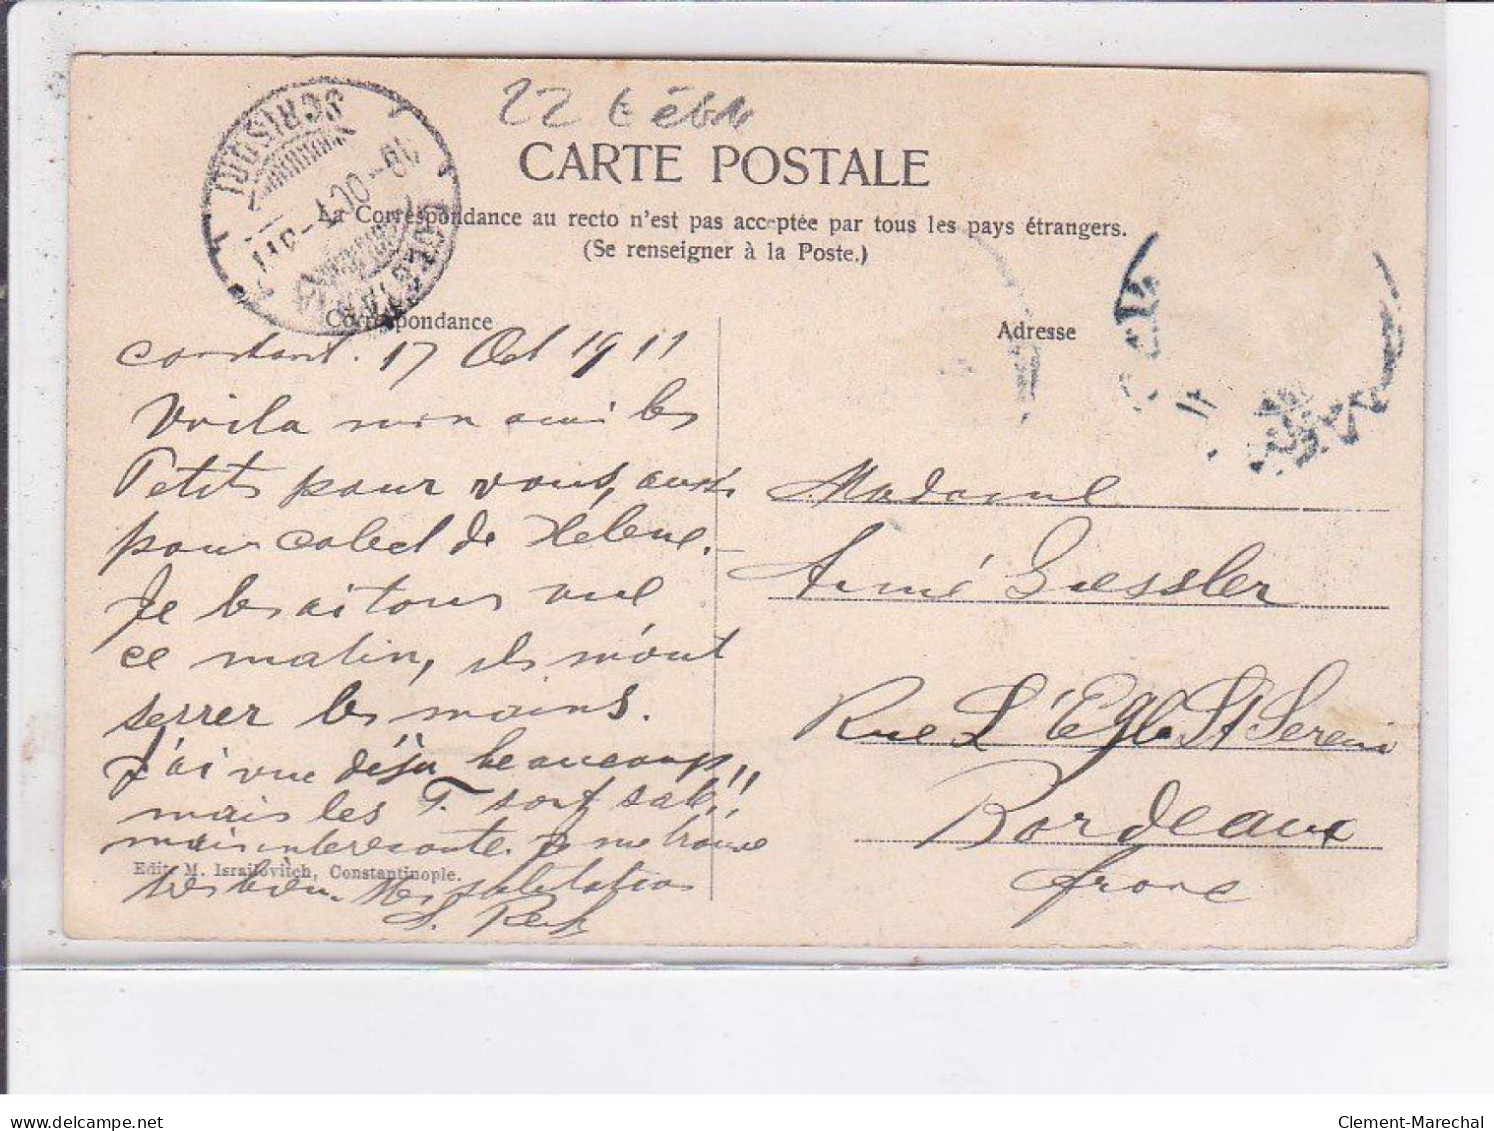 22
CARTE POSTALE
La Correspondance au recto n'est pas acceptée par tous les pays étrangers.
(Se renseigner à la Poste.)
SCRISORI
Correspondance
Constant. 17 Oct 1911
Voila mon ami les
Petits pour vous, aussi
pour de Hélène.
Je les ai tous vue
ce matin, ils m'out
serrer les mains.
J'ai vue déja beaucoup
mais les T. sont sale!!
mais interessante. je me trouve
tres bien. Mes salutation
Edit. M. Israilovitch, Constantinople.
Adresse
Madame
Aimé Guessler
Rue L'Eglise St Serein
Bordeaux
france
delcampe.net
Clement-Marechal